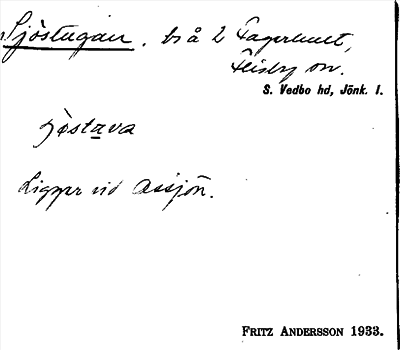 Sjöstugan. bs å 2 Fagerhult,
Flisby sn.
S. Vedbo hd, Jönk. l.
sjöstava
Ligger vid Assjön.
FRITZ ANDERSSON 1933.